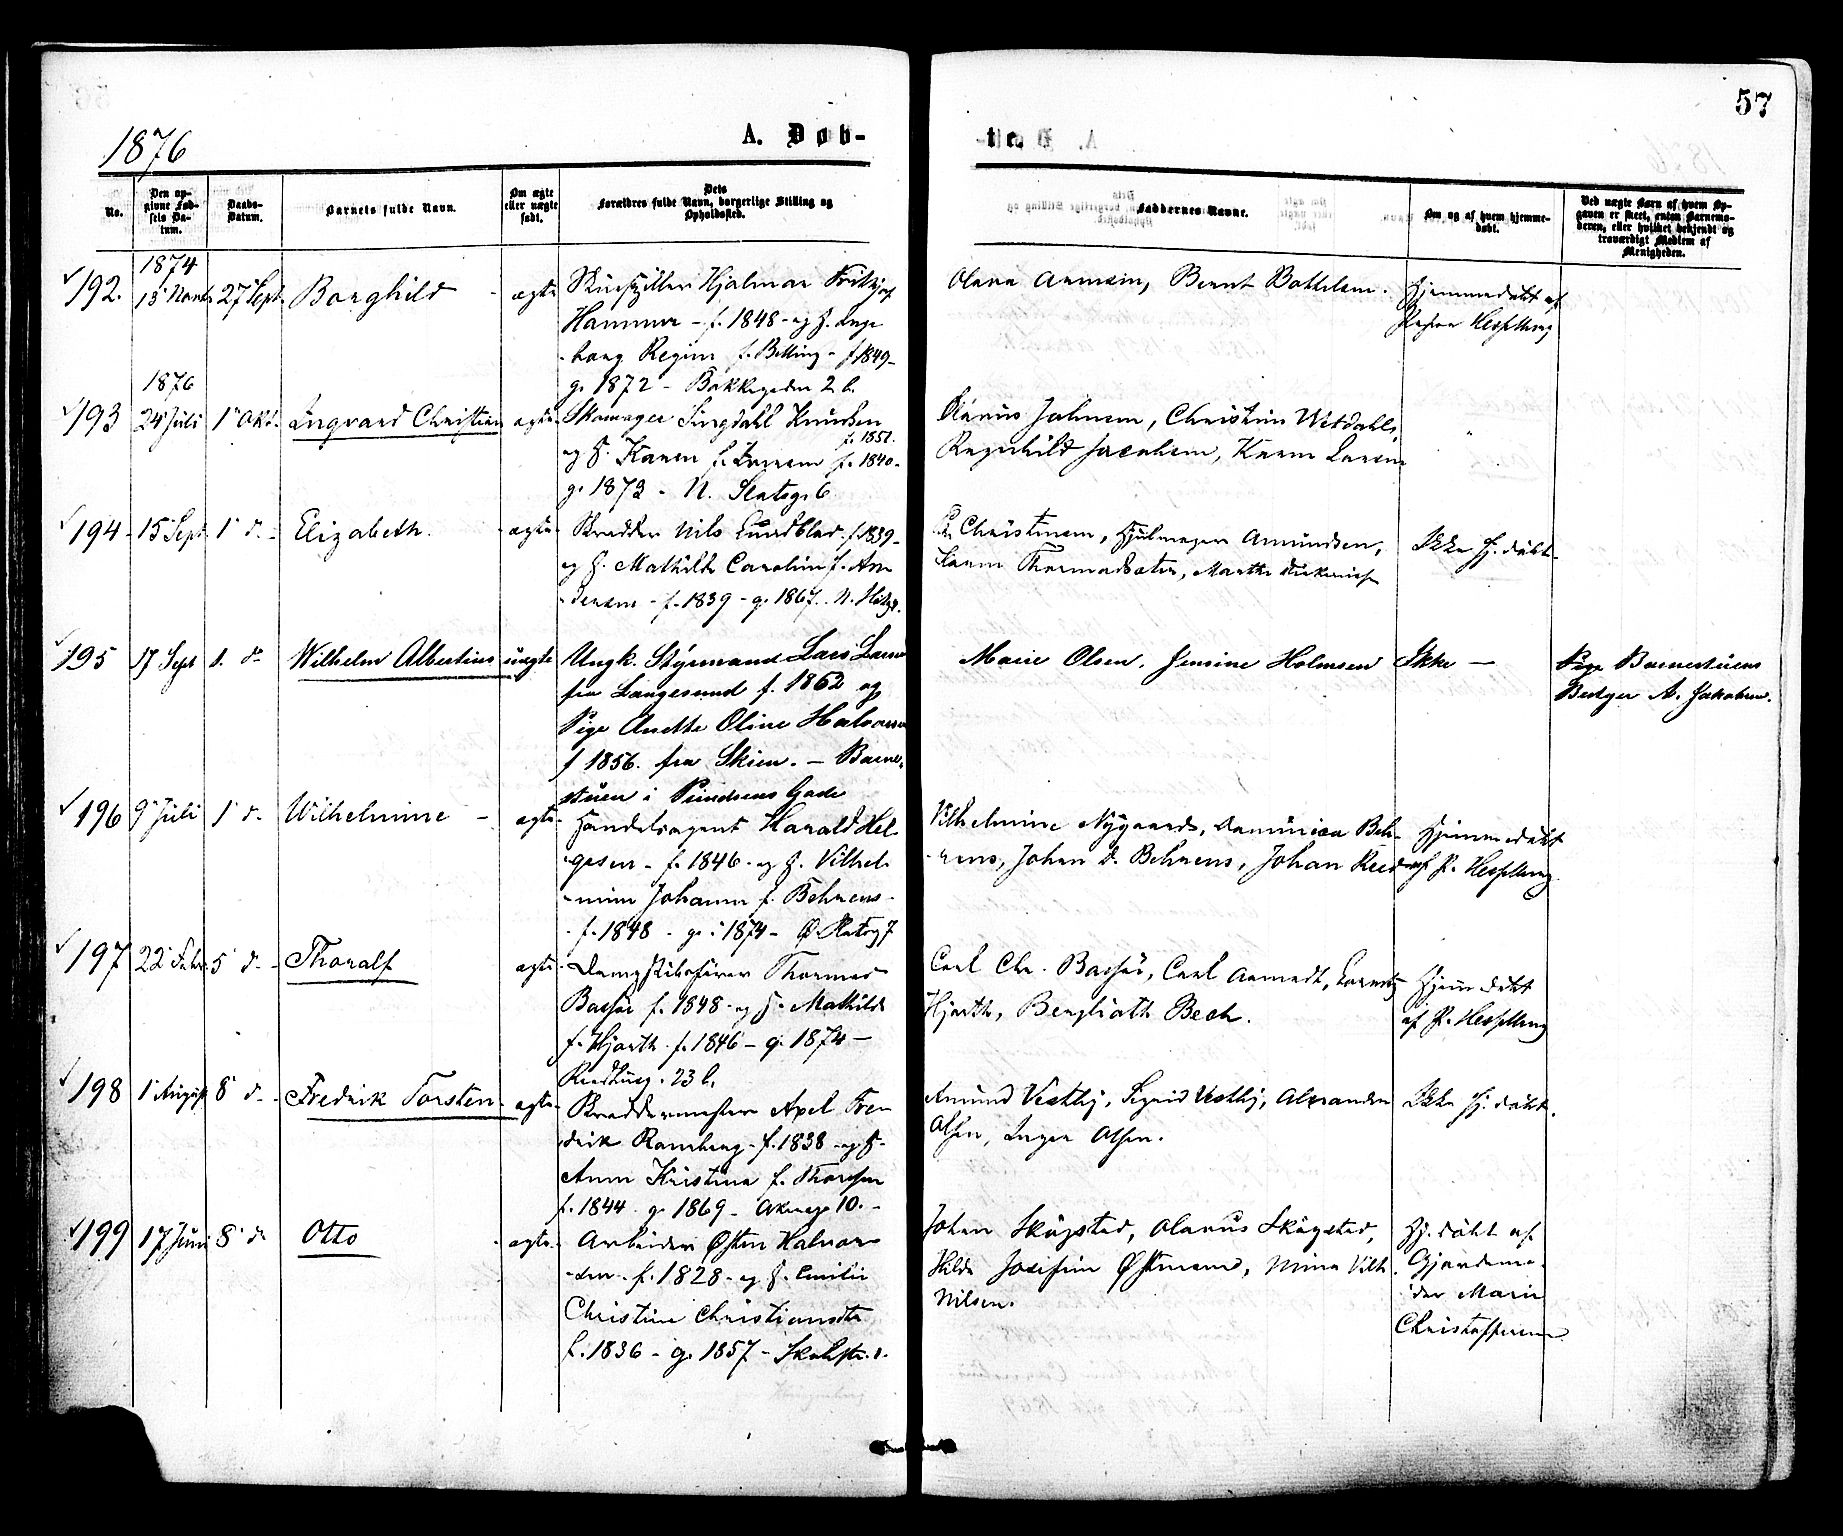 57
1876
A. Døb-
te.
No.
Den op-
givne Fød-
sels Da-
tum.
Daabs-
Datum.
Barnets fulde Navn.
Om ægte
eller uægte
født.
Dets
Forældres fulde Navn, borgerlige Stilling og
Opholdssted.
Faddernes Navne.
Om og af hvem hjemme-
døbt.
Ved uægte Barn af hvem Op-
gaven er skeet, enten Barnemo-
deren, eller hvilket bekjendt og
troværdigt Medlem af
Menigheden.
1874
192. 27 Sept Borghild ægte Hjalmar
Hammer - f. 1848 - og H. Inge
borg f. Betting - f 1849 -
g. 1872 - Bakkegaden 2 b.
Bernt
Hjemmedøbt af
1876
193 24 Juli 1 Okt. Ingvard Christian ægte Skomager Knudsen
f. 1851.
og H. Karen f. Larsen f. 1840 -
g. 1873 - N.
Olaus Johnsen, Christine
Ragnhild Jacobsen, Karen Larsen
194 - 15 Sept 1 d. - Elizabeth. ægte Skrædder Nils Lundblad f. 1839 -
og H. Mathilde Caroline f. An
dersen - f. 1839 - g. 1867. N.
Christensen, Hjulmager Amundsen,
Karen Marthe
Ikke Hj. døbt -
195 17 Sept 1. d. Wilhelm Albertius uægte Ungk. Styrmand Lars Larsen
fra Langesund f. 1862 og
Pige Anette Oline Halvorsen
f 1856. fra Skien. - Barne-
stuen i Gade
Marie Olsen. Jensine Holmsen Ikke -
Pige Barnestuens
A. Jakobsen.
196 9 Juli 1 d. Wilhelmine - ægte Handelsagent Harald Hel-
gesen - f. 1846 - og H. Vilhel-
mine Johanne f. Behrens -
f. 1848 - g. 1874 - Ø.
Vilhelmine Nygaard, Beh-
rens, Johan d. Behrens, Johan
Hjemmedøbt
af P. Hesselberg
197 22 5 d. - Thoralf ægte Dampskibsfører Thomas
Bassøe f. 1848 - og H. Mathilde
f. Hjorth f. 1846 - g. 1874 -
23 b.
Carl Chr. Bassøe, Carl
Hjorth, Berglioth Bech.
Hjem døbt
af P. Hesselberg
198 1 August 8 d. - Fredrik Torsten - ægte Skræddermester Axel Fre
drik Ramberg - f. 1838 - og H.
Anne Kristine f. Thorsen
f. 1844 - g. 1869 - 10. -
Amund Vestby, Sigrid Vestby, Alexander
Olsen, Inger Olsen.
Ikke Hj. døbt.
199 17 Juni 8 d. Otto ægte - Arbeider Østen Halvor
sen - f. 1828 - og H. Emilie
Christine Christiansdtr
f. 1836 - g. 1857 -
Johan Skøgstad, Olaves Skøgstad,
Hilda Josefine Mina Vilh
Nilsen.
Hj. døbt af
Gjordemo-
der Marie
Christoffersen